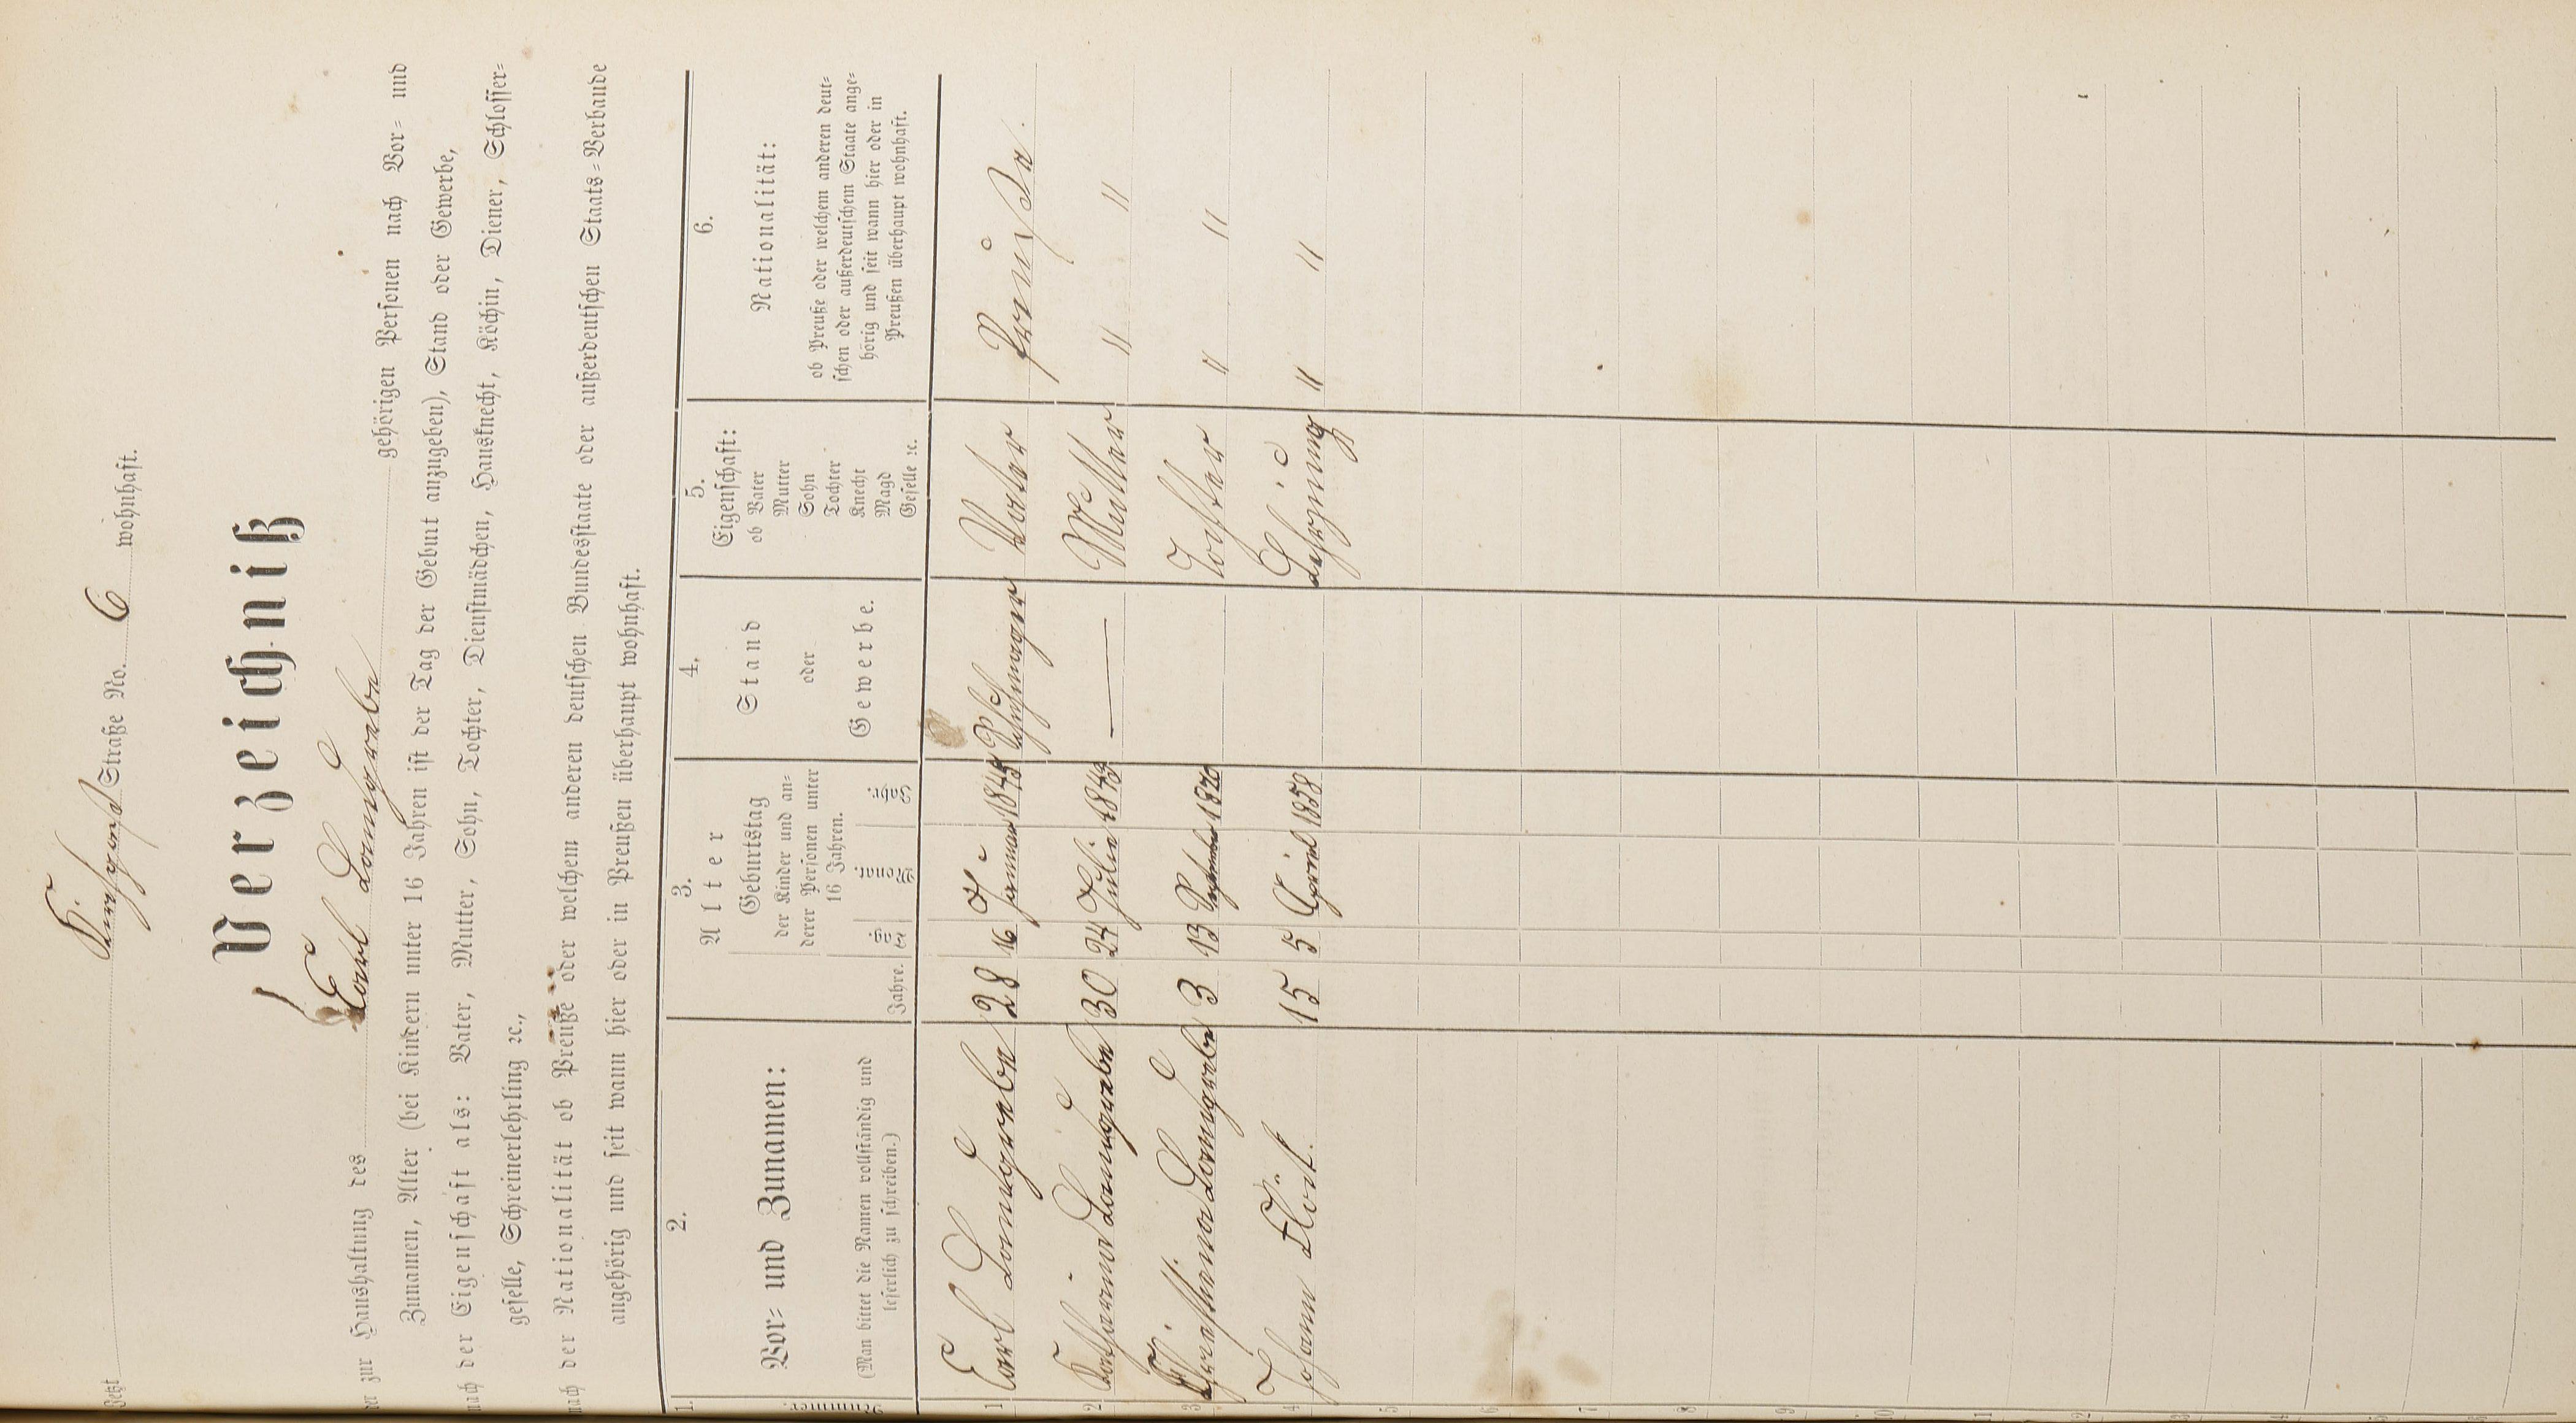 Jetzt Kirchgasse Straße No. 6 wohnhaft.
Verzeichniß
der zur Haushaltung des Carl Landgrebe gehörigen Personen nach Vor- und
Zunamen, Alter (bei Kindern unter 16 Jahren ist der Tag der Geburt anzugeben), Stand oder Gewerbe,
nach der Eigenschaft als: Vater, Mutter, Sohn, Tochter, Dienstmädchen, Hausknecht, Köchin, Diener, Schlosser-
geselle, Schreinerlehrling ꝛc.,
nach der Nationalität ob Preuße oder welchem anderen deutschen Bundesstaate oder außerdeutschen Staats-Verbande
angehörig und seit wann hier oder in Preußen überhaupt wohnhaft.
1. 2. 3. 4. 5. 6.
Nummer.
Vor- und Zunamen:
(Man bittet die Namen vollständig und
leserlich zu schreiben.)
Alter
Jahre.
Geburtstag
der Kinder und an-
derer Personen unter
16 Jahren.
Tag. Monat. Jahr.
Stand
oder
Gewerbe.
Eigenschaft:
ob Vater
Mutter
Sohn
Tochter
Knecht
Magd
Geselle ꝛc.
Nationalität:
ob Preuße oder welchem anderen deut-
schen oder außerdeutschem Staate ange-
hörig und seit wann hier oder in
Preußen überhaupt wohnhaft.
1 Carl Landgrebe 28 16 Januar Schuhmacher Vater Preuße.
2 Katharina Landgrebe 30 24 Julia 1843 — Mutter " "
3 Christina Landgrebe 3 13 September 1870 Tochter " "
4 Johann Klödt. 15 5 April 1858 Lehrjung " "
5
6
7
8
9
10
11